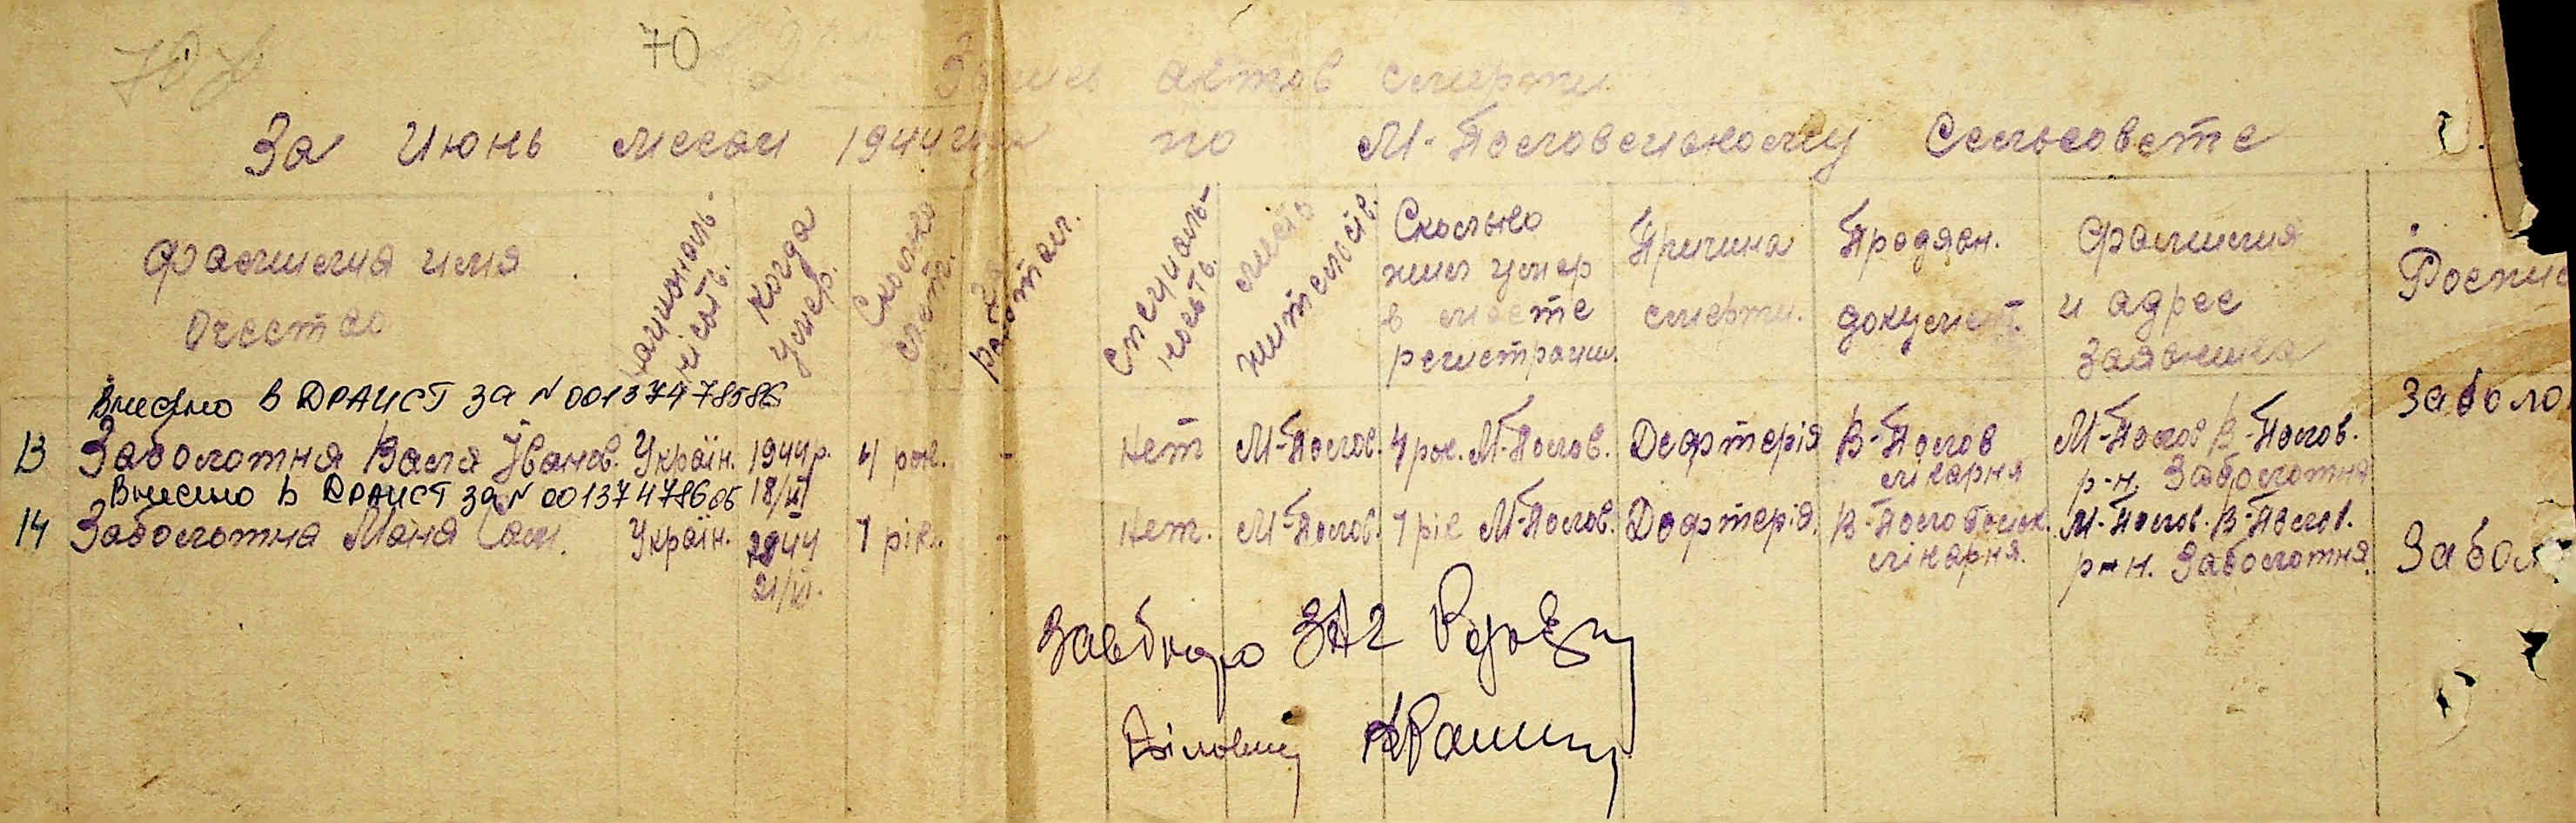 70
Запись актов смерти
За Июнь месяц 1944 года по М-Пологовецькому Сельсовете
Фамилия имя Очество
Националь-ность.
Когда умер.
Сколько лет.
Где работал.
Специаль-ность.
место жительств.
Сколько жил умер в месте регистрации.
Причина смерти.
Продяан. документ.
Фамилия и адрес Заявника
Роспис
Внесено в ДРАЦСТ за N 00137478586
13 Заболотня Валя Іванов. Україн. 1944р. 18/VI 4 рок. - Нет М-Полов. 4 рок. М-Полов. Дефтерія В-Полов лікарня М-Полов В-Полов. р-н. Заболотня Заболо
Внесено в ДРАЦСТ за N 00137478605
14 Заболотна Маня Сам. Україн. 1944 21/VI. 1 рік. - Нет. М-Полов. 1 рік М-Полов. Дефтерія. лікарня. М-Полов. В-Полов. р-н. Заболотня. Забол
Завбюро ЗАГ
Діловод